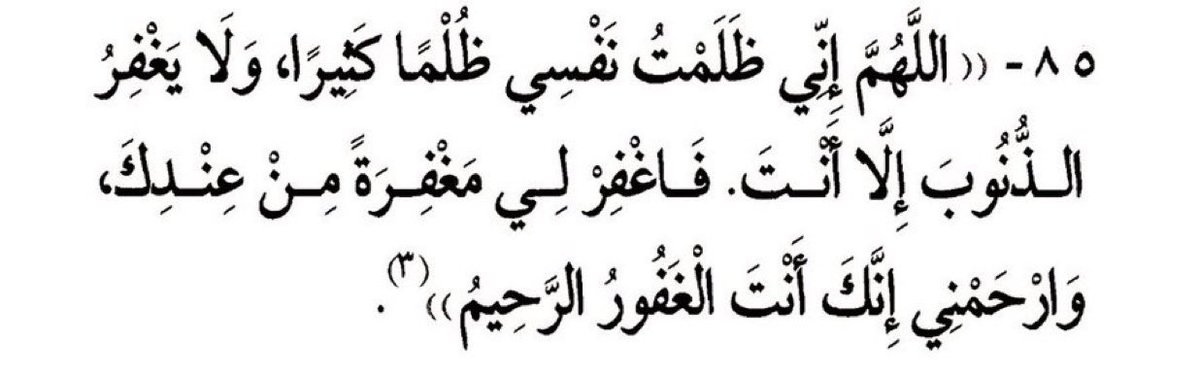 ٨٥ - «اللَّهُمَّ إِنِّي ظَلَمْتُ نَفْسِي ظُلْمًا كَثِيرًا، وَلَا يَغْفِرُ
الـذُّنُوبَ إِلَّا أَنْـتَ. فَـاغْفِرْ لِـي مَغْفِـرَةً مِـنْ عِنْـدِكَ،
وَارْحَمْنِي إِنَّكَ أَنْتَ الْغَفُورُ الرَّحِيمُ»(٣).